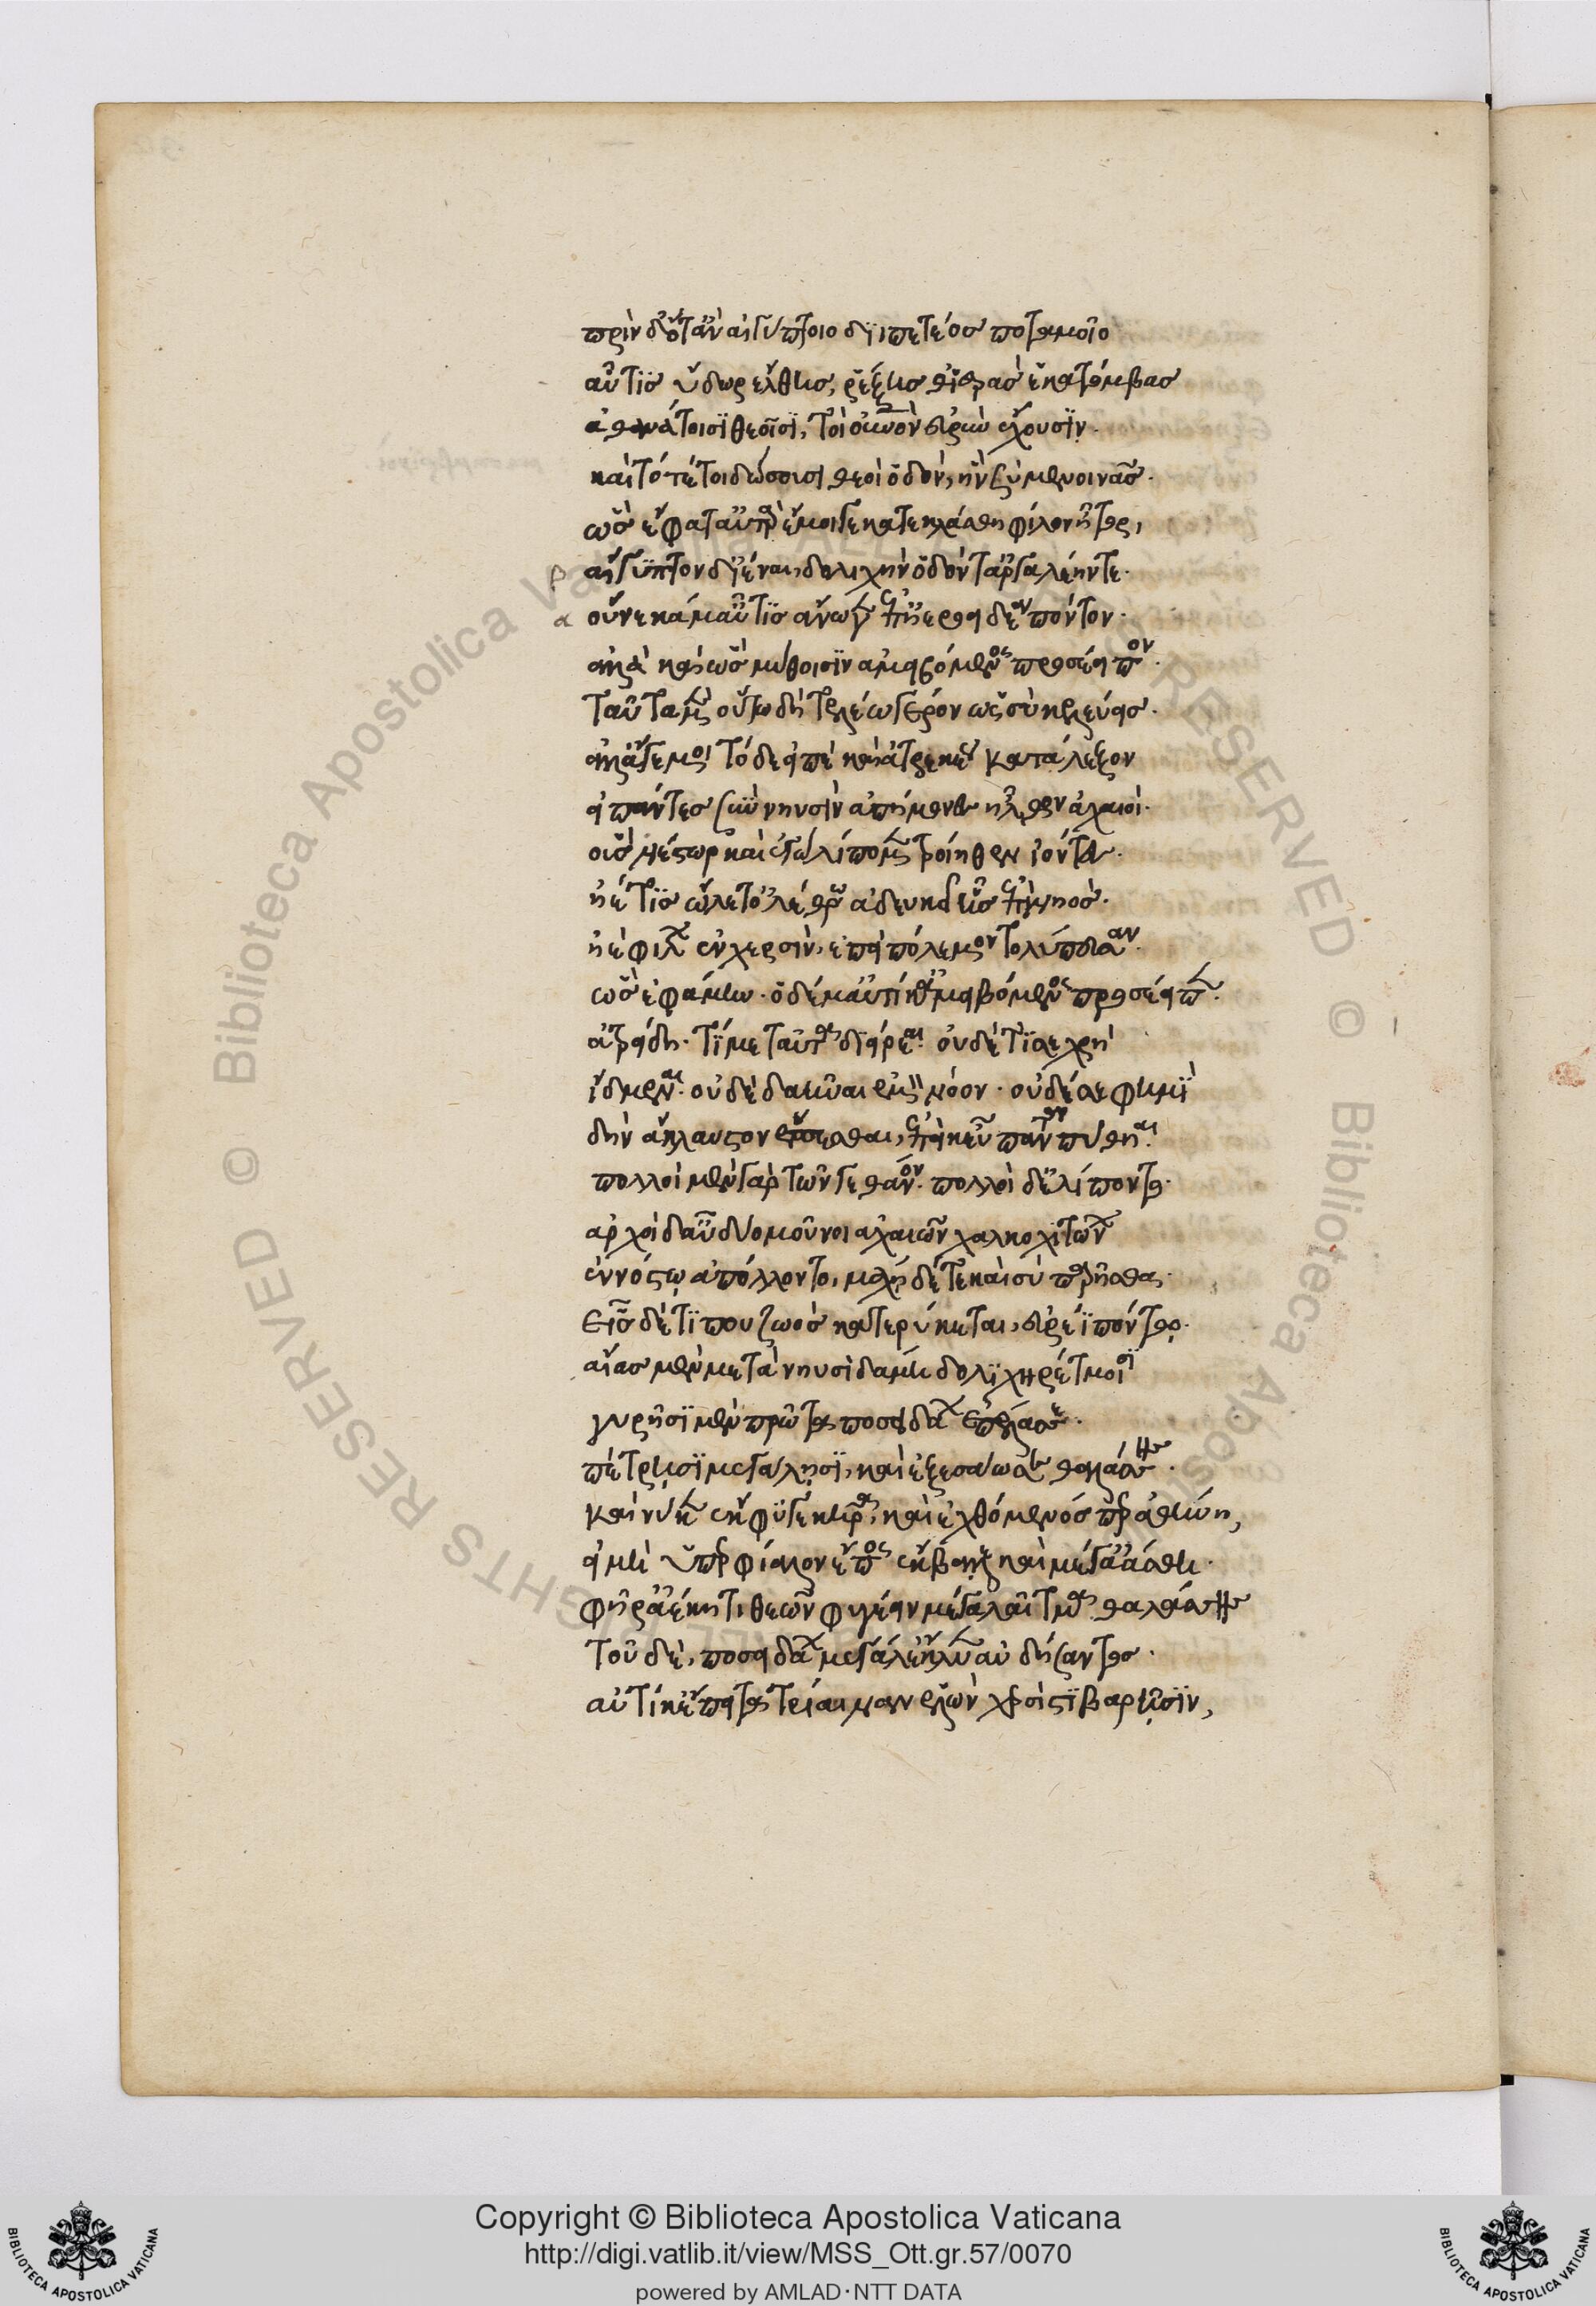 πρὶν δ' ὅτ' ἂν αἰγύπτοιο διϊπετέος ποταμοῖο
αὖτις ὕδωρ ἔλθῃς, ῥέξῃς θ' ἱερὰς ἑκατόμβας
ἀθανάτοισι θεοῖσι, τοὶ οὐρανὸν εὐρὺν ἔχουσιν.
καὶ τότέ τοι δώσουσι θεοὶ ὁδὸν, ἣν σὺ μενοινᾶς.
ὣς ἔφατ' αὐτὰρ ἔμοιγε κατεκλάσθη φίλον ἦτορ,
β αἴγυπτον δ' ἰέναι, δολιχὴν ὁδὸν τ' ἀργαλέην τε.
α οὕνεκά μ' αὖτις ἄνωγεν ἐπ' ἠεροειδέα πόντον.
ἀλλὰ καὶ ὣς μύθοισιν ἀμειβόμενος προσέειπον.
ταῦτα μὲν οὕτω δὴ τελέω γέρον ὡς σὺ κελεύεις.
ἀλλ' ἄγε μοι τόδε εἰπὲ καὶ ἀτρεκέως κατάλεξον
εἰ πάντες σὺν νηυσὶν ἀπήμονες ἦλθον ἀχαιοὶ.
οὓς νέστωρ καὶ ἐγὼ λίπομεν τροίηθεν ἰόντες.
ἠέ τις ὤλετ' ὀλέθρῳ ἀδευκέϊ ἧς ἐπὶ νηὸς.
ἠὲ φίλων ἐν χερσὶν, ἐπεὶ πόλεμον τολύπευσαν.
ὣς ἐφάμην. ὁ δέ μ' αὐτίκ' ἀμειβόμενος προσέειπεν.
ἀτρείδη. τί με ταῦτα διείρεαι. οὐδέ τί σε χρὴ
ἴδμεναι. οὐδὲ δαῆναι ἐμὸν νόον. οὐδέ σε φημὶ
δὴν ἄκλαυστον ἔσεσθαι, ἐπεί κ' εὖ πάντα πύθηαι.
πολλοὶ μὲν γὰρ τῶν γε θάνον. πολλοὶ δὲ λίποντο.
ἀρχοὶ δ' αὖ δύο μοῦνοι ἀχαιῶν χαλκοχιτώνων
ἐν νόστῳ ἀπόλλοντο, μάχῃ δέ τε καὶ σὺ παρῆσθα.
εἷς δέ τι που ζωὸς κατερύκεται, εὐρέϊ πόντῳ.
αἴας μὲν μετὰ νηυσὶ δάμη δολιχηρέτμοισι
γυρῇσι μὲν πρῶτα ποσειδάων ἐπέλασσε.
πέτρῃσι μεγάλῃσι, καὶ ἐξεσάωσε θαλάσσης.
καί νύ κεν ἔκφυγε κῆρα, καὶ ἐχθόμενός περ ἀθήνῃ,
εἰ μὴ ὑπερφίαλον ἔπος ἔκβαλε καὶ μέγ' ἀάσθη.
φῆ ῥ' ἀέκητι θεῶν φυγέειν μέγα λαῖτμα θαλάσσης
τοῦ δὲ, ποσειδάων μεγάλ' ἔκλυεν αὐδήσαντος.
αὐτίκ' ἔπειτα τρίαιναν ἑλὼν χερσὶ στιβαρῇσιν,
Copyright © Biblioteca Apostolica Vaticana
http://digi.vatlib.it/view/MSS_Ott.gr.57/0070
powered by AMLAD·NTT DATA